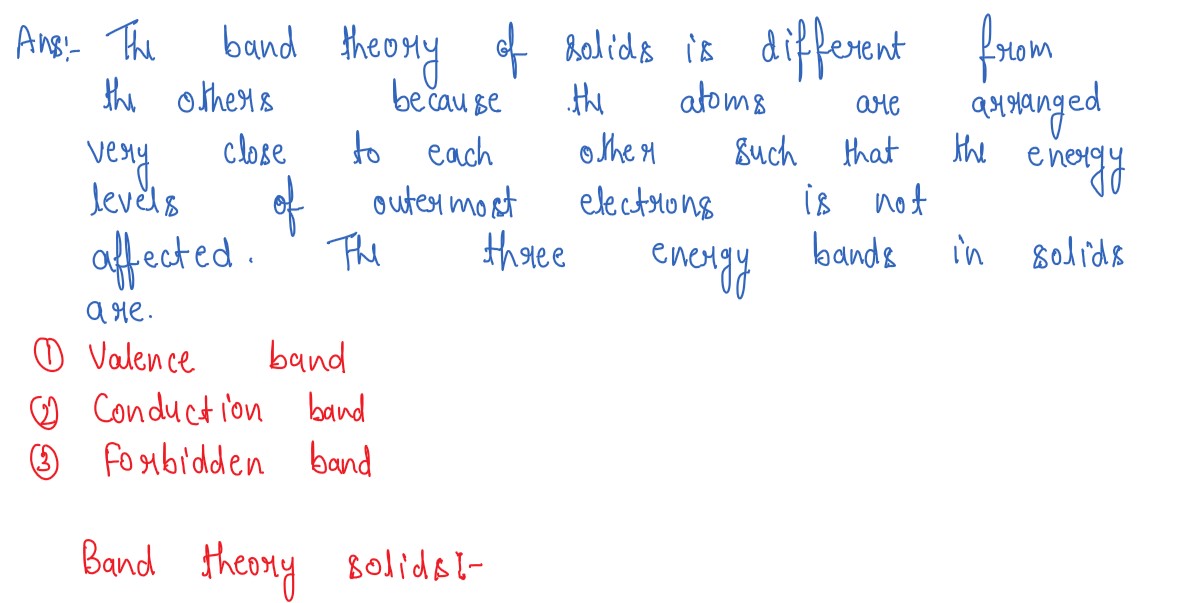 Ans:- The band theory of solids is different from
the others because the atoms are arranged
very close to each other such that the energy
levels of outermost electrons is not
affected. The three energy bands in solids
are.
① Valence band
② Conduction band
③ Forbidden band
Band theory solids:-